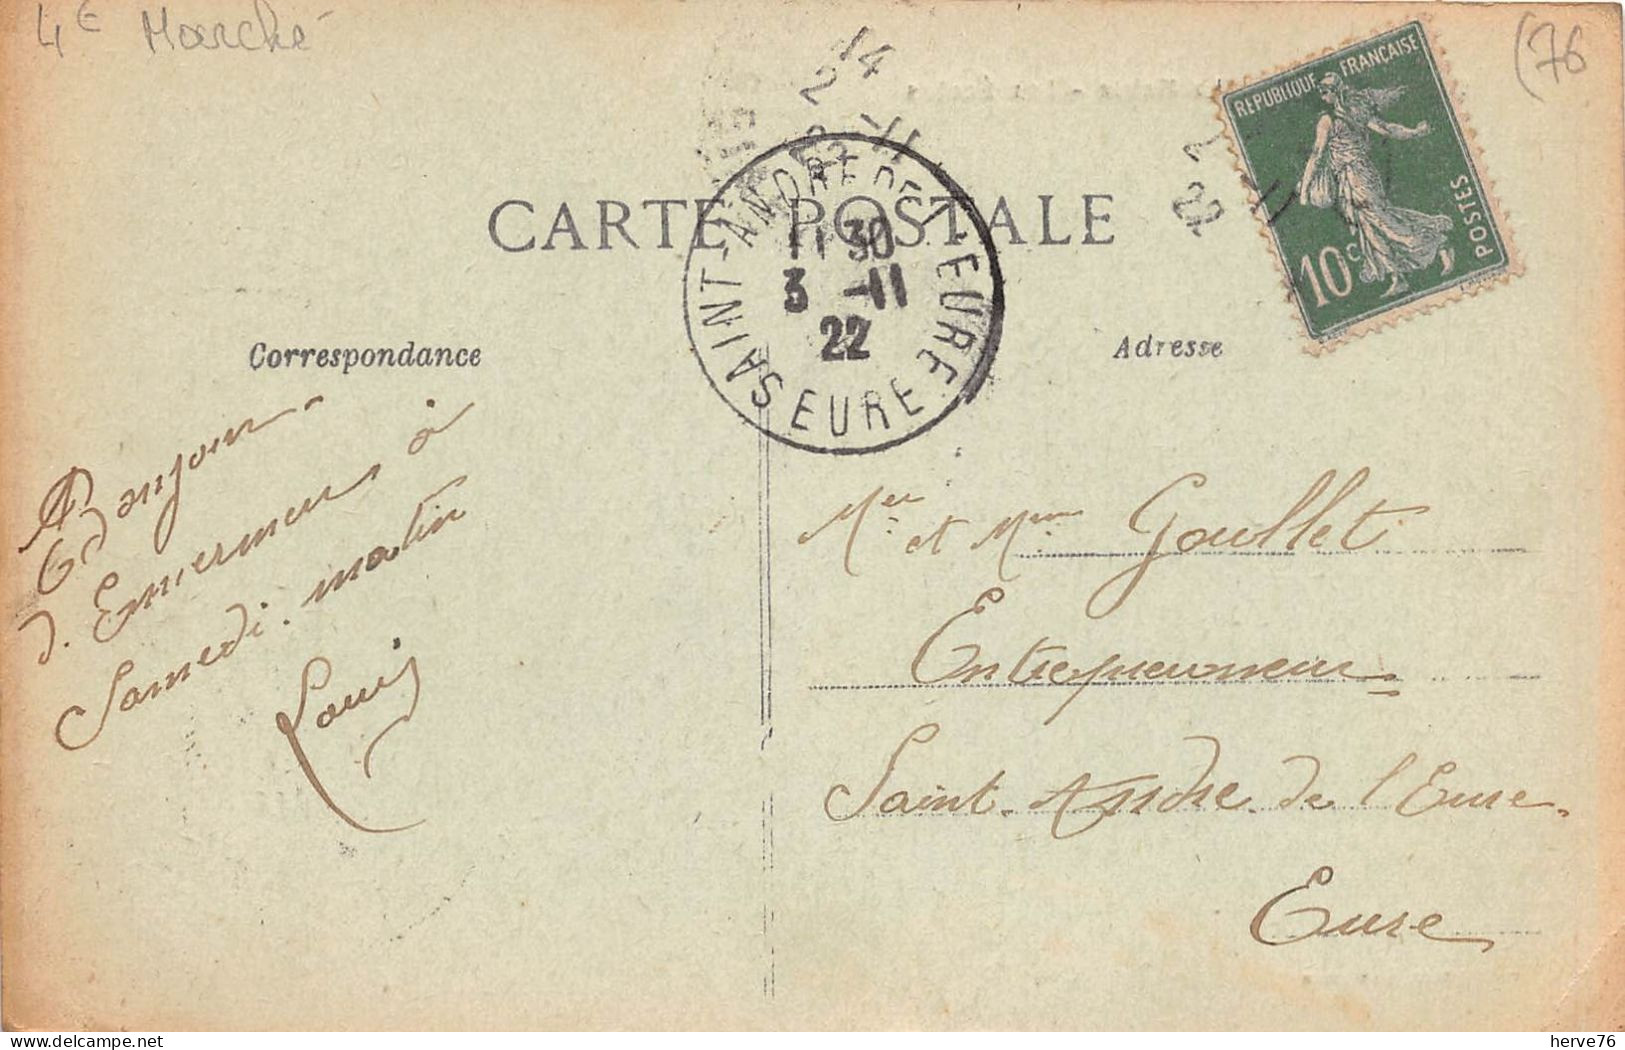 4€ Marché
(76
14
2 -11
RÉPUBLIQUE FRANÇAISE
10c
POSTES
CARTE POSTALE
SAINT-ANDRE DE L'EURE
11 30
3 -11
22
EURE
Correspondance
Adresse
Bonjour
d'Envermeu à
Samedi matin
Louis
Mr et Mme Goullet
Entrepreneur
Saint-André de l'Eure
Eure
herve76
delcampe.net